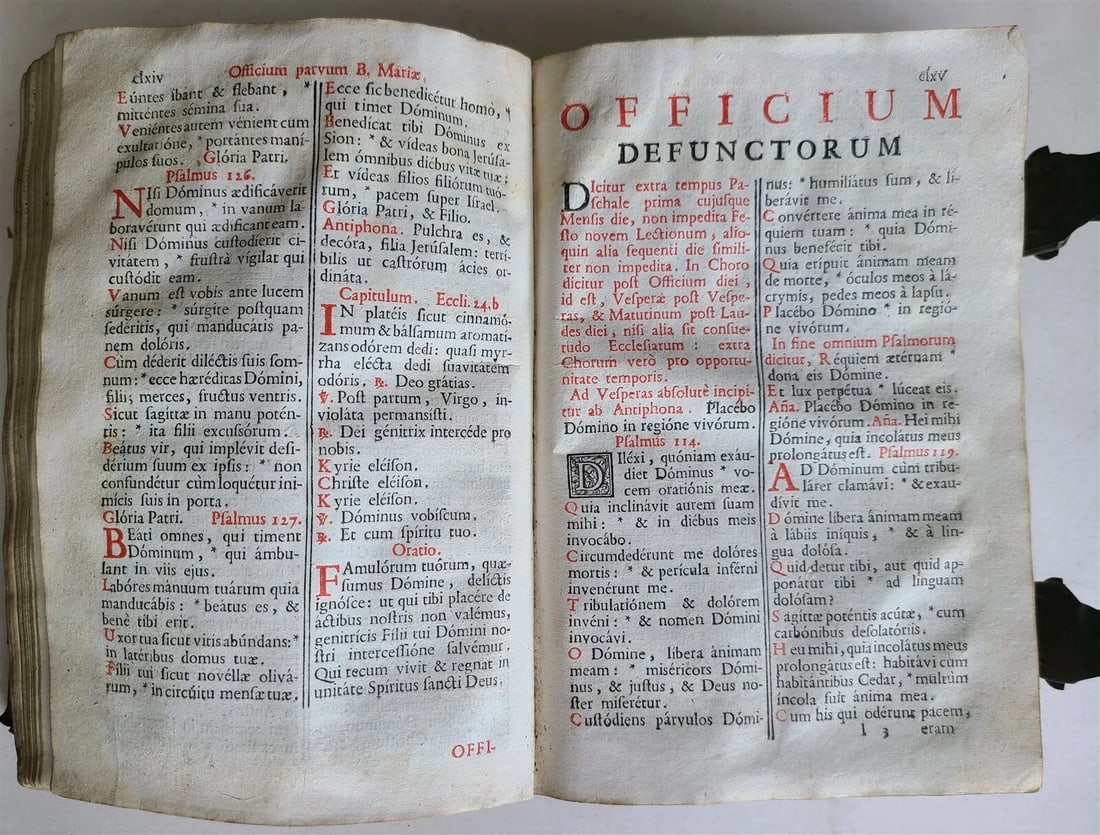 clxiv
Officium parvum B. Mariæ.
Eúntes ibant & flebant, *
mitténtes sémina sua.
Veniéntes autem vénient cum
exultatióne, * portántes maní-
pulos suos. Glória Patri.
Psalmus 126.
NIsi Dóminus ædificáverit
domum, * in vanum la-
boravérunt qui ædificant eam.
Nisi Dóminus custodíerit ci-
vitátem, * frustrà vígilat qui
custódit eam.
Vanum est vobis ante lucem
súrgere: * súrgite postquam
sedéritis, qui manducátis pa-
nem dolóris.
Cùm déderit diléctis suis som-
num: * ecce hæréditas Dómini,
filii; merces, fructus ventris.
Sicut sagittæ in manu potén-
tis: * ita filii excussórum.
Beátus vir, qui implévit desi-
dérium suum ex ipsis: * non
confundétur cùm loquétur ini-
mícis suis in porta.
Glória Patri. Psalmus 127.
BEáti omnes, qui timent
Dóminum, * qui ámbu-
lant in viis ejus.
Labóres mánuum tuárum quia
manducábis: * beátus es, &
benè tibi erit.
Uxor tua sicut vitis abúndans: *
in latéribus domus tuæ.
Fílii tui sicut novéllæ olivá-
rum, * in circúitu mensæ tuæ,
Ecce sic benedicétur homo, *
qui timet Dóminum.
Benedícat tibi Dóminus ex
Sion: * & vídeas bona Jerúsa-
lem ómnibus diébus vitæ tuæ:
Et vídeas filios filiórum tuó-
rum, * pacem super Israel.
Glória Patri, & Filio.
Antiphona. Pulchra es, &
decóra, filia Jerúsalem: terrí-
bilis ut castrórum ácies or-
dináta.
Capitulum. Eccli. 24. b
IN platéis sicut cinnamó-
mum & bálsamum aromatí-
zans odórem dedi: quasi myr-
rha elécta dedi suavitátem
odóris, ℟. Deo grátias.
℣. Post partum, Virgo, in-
violáta permansísti.
℟. Dei génitrix intercéde pro
nobis.
Kyrie eléison.
Christe eléison.
Kyrie eléison.
℣. Dóminus vobíscum.
℟. Et cum spíritu tuo.
Oratio.
FAmulórum tuórum, quæ-
sumus Dómine, delíctis
ignósce: ut qui tibi placére de
áctibus nostris non valémus,
genitrícis Fílii tui Dómini no-
stri intercessióne salvémur.
Qui tecum vivit & regnat in
unitáte Spíritus sancti Deus,
OFFI-
clxv
OFFICIUM
DEFUNCTORUM
DIcitur extra tempus Pa-
schale prima cujusque
Mensis die, non impedita Fe-
sto novem Lectionum, alio-
quin alia sequenti die simili-
ter non impedita. In Choro
dicitur post Officium diei,
id est, Vesperæ post Vespe-
ras, & Matutinum post Lau-
des diei, nisi alia sit consue-
tudo Ecclesiarum: extra
Chorum verò pro opportu-
nitate temporis.
Ad Vesperas absolutè incipi-
tur ab Antiphona. Placébo
Dómino in regióne vivórum.
Psalmus 114.
DIléxi, quóniam exáu-
diet Dóminus * vo-
cem oratiónis meæ.
Quia inclinávit aurem suam
mihi: * & in diébus meis
invocábo.
Circumdedérunt me dolóres
mortis: * & perícula inférni
invenérunt me.
Tribulatiónem & dolórem
invéni: * & nomen Dómini
invocávi.
O Dómine, líbera ánimam
meam: * miséricors Dómi-
nus, & justus, & Deus no-
ster miserétur.
Custódiens párvulos Dómi-
nus: * humiliátus sum, & li-
berávit me.
Convértere ánima mea in ré-
quiem tuam: * quia Dómi-
nus benefécit tibi.
Quia erípuit ánimam meam
de morte, * óculos meos à lá-
crymis, pedes meos à lapsu.
Placébo Dómino * in regió-
ne vivórum.
In fine omnium Psalmorum
dicitur, Réquiem ætérnam *
dona eis Dómine.
Et lux perpétua * lúceat eis.
Aña. Placébo Dómino in re-
gióne vivórum. Aña. Hei mihi
Dómine, quia incolátus meus
prolongátus est. Psalmus 119.
AD Dóminum cùm tribu-
lárer clamávi: * & exau-
dívit me.
Dómine líbera ánimam meam
à lábiis iníquis, * & à lin-
gua dolósa.
Quid detur tibi, aut quid ap-
ponátur tibi * ad linguam
dolósam?
Sagíttæ poténtis acútæ, * cum
carbónibus desolatóriis.
Heu mihi, quia incolátus meus
prolongátus est: habitávi cum
habitántibus Cedar, * multùm
íncola fuit ánima mea.
Cum his qui odérunt pacem,
l 3 eram